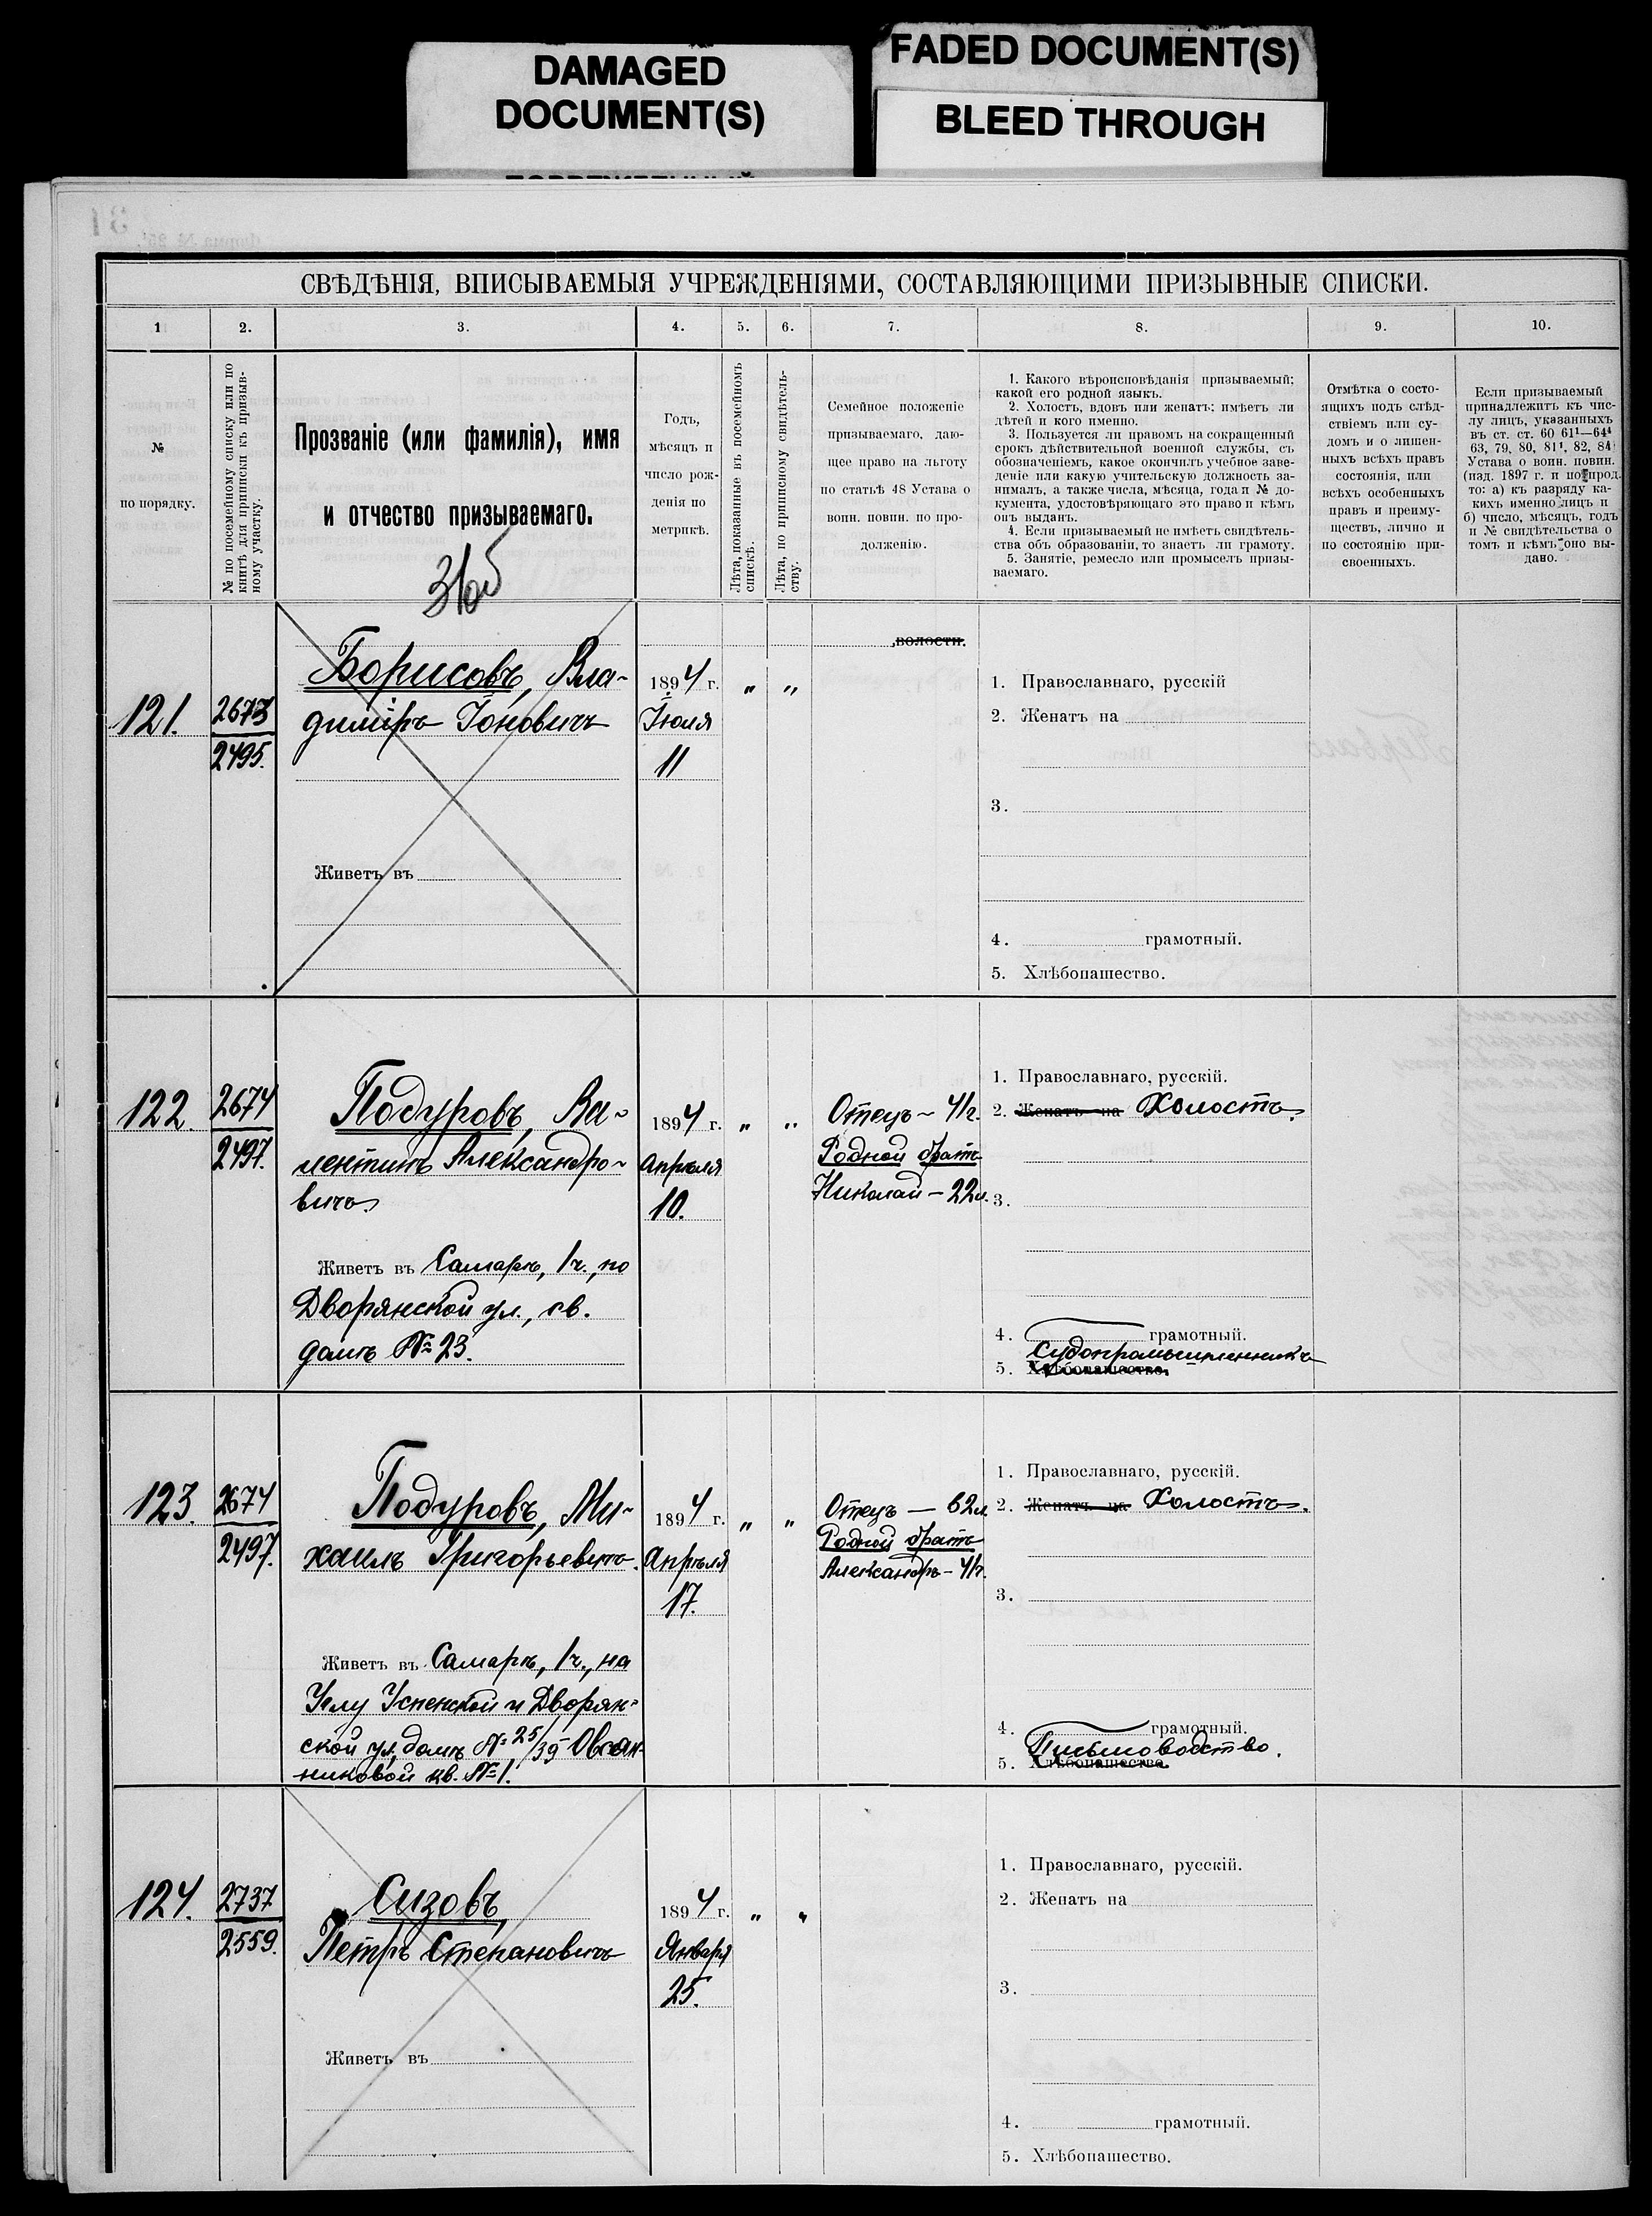 DAMAGED
DOCUMENT(S)
FADED DOCUMENT(S)
BLEED THROUGH
СВѢДѢНІЯ, ВПИСЫВАЕМЫЯ УЧРЕЖДЕНІЯМИ, СОСТАВЛЯЮЩИМИ ПРИЗЫВНЫЕ СПИСКИ.
1 2. 3. 4. 5. 6. 7. 8. 9. 10.
№
по порядку.
№ по посемейному списку или по
книгѣ для приписки къ призыв-
ному участку.
Прозваніе (или фамилія), имя
и отчество призываемаго.
31об
Годъ,
мѣсяцъ и
число рож-
денія по
метрикѣ.
Лѣта, показанные въ посемейномъ
спискѣ.
Лѣта, по приписному свидѣтель-
ству.
Семейное положеніе
призываемаго, даю-
щее право на льготу
по статьѣ 48 Устава о
воин. повин. по про-
долженію.
1. Какого вѣроисповѣданія призываемый;
какой его родной языкъ.
2. Холостъ, вдовъ или женатъ; имѣетъ ли
дѣтей и кого именно.
3. Пользуется ли правомъ на сокращенный
срокъ дѣйствительной военной службы, съ
обозначеніемъ, какое окончилъ учебное заве-
деніе или какую учительскую должность за-
нималъ, а также числа, мѣсяца, года и № до-
кумента, удостовѣряющаго это право и кѣмъ
онъ выданъ.
4. Если призываемый не имѣетъ свидѣтель-
ства объ образованіи, то знаетъ ли грамоту.
5. Занятіе, ремесло или промыселъ призы-
ваемаго.
Отмѣтка о состо-
ящихъ подъ слѣд-
ствіемъ или су-
домъ и о лишен-
ныхъ всѣхъ правъ
состоянія, или
всѣхъ особенныхъ
правъ и преиму-
ществъ, лично и
по состоянію при-
своенныхъ.
Если призываемый
принадлежитъ къ чис-
лу лицъ, указанныхъ
въ ст. ст. 60 61¹—64⁴
63, 79, 80, 81¹, 82, 84
Устава о воин. повин.
(изд. 1897 г. и по прод.
то: а) къ разряду ка-
кихъ именно лицъ и
б) число, мѣсяцъ, годъ
и № свидѣтельства о
томъ и кѣмъ оно вы-
дано.
121.
2673
2495.
Борисовъ, Вла-
димiръ Іоновичъ
Живетъ въ
1894 г.
Іюля
11
" "
волости.
1. Православнаго, русскій
2. Женатъ на
3.
4. грамотный.
5. Хлѣбопашество.
122.
2674
2497.
Подуровъ, Ва-
лентинъ Александро-
вичъ
Живетъ въ Самарѣ, 1ч., по
Дворянской ул., св.
домъ № 23.
1894 г.
Апрѣля
10.
" "
Отецъ - 41г.
Родной братъ
Николай - 22л.
1. Православнаго, русскій.
2. Женатъ на Холостъ.
3.
4. грамотный.
Судопромышленникъ
5. Хлѣбопашество.
123.
2674
2497.
Подуровъ, Ми-
хаилъ Григорьевичъ.
Живетъ въ Самарѣ, 1ч., на
Углу Успенской и Дворян-
ской ул., домъ № 25/39 Овсян-
никовой кв. № 1.
1894 г.
Апрѣля
17.
" "
Отецъ — 62л.
Родной братъ
Александръ - 41г.
1. Православнаго, русскій.
2. Женатъ на Холостъ.
3.
4. грамотный.
Письмоводство.
5. Хлѣбопашество.
124.
2737
2559.
Сизовъ,
Петръ Степановичъ
Живетъ въ
1894 г.
Января
25.
" "
1. Православнаго, русскій.
2. Женатъ на
3.
4. грамотный.
5. Хлѣбопашество.